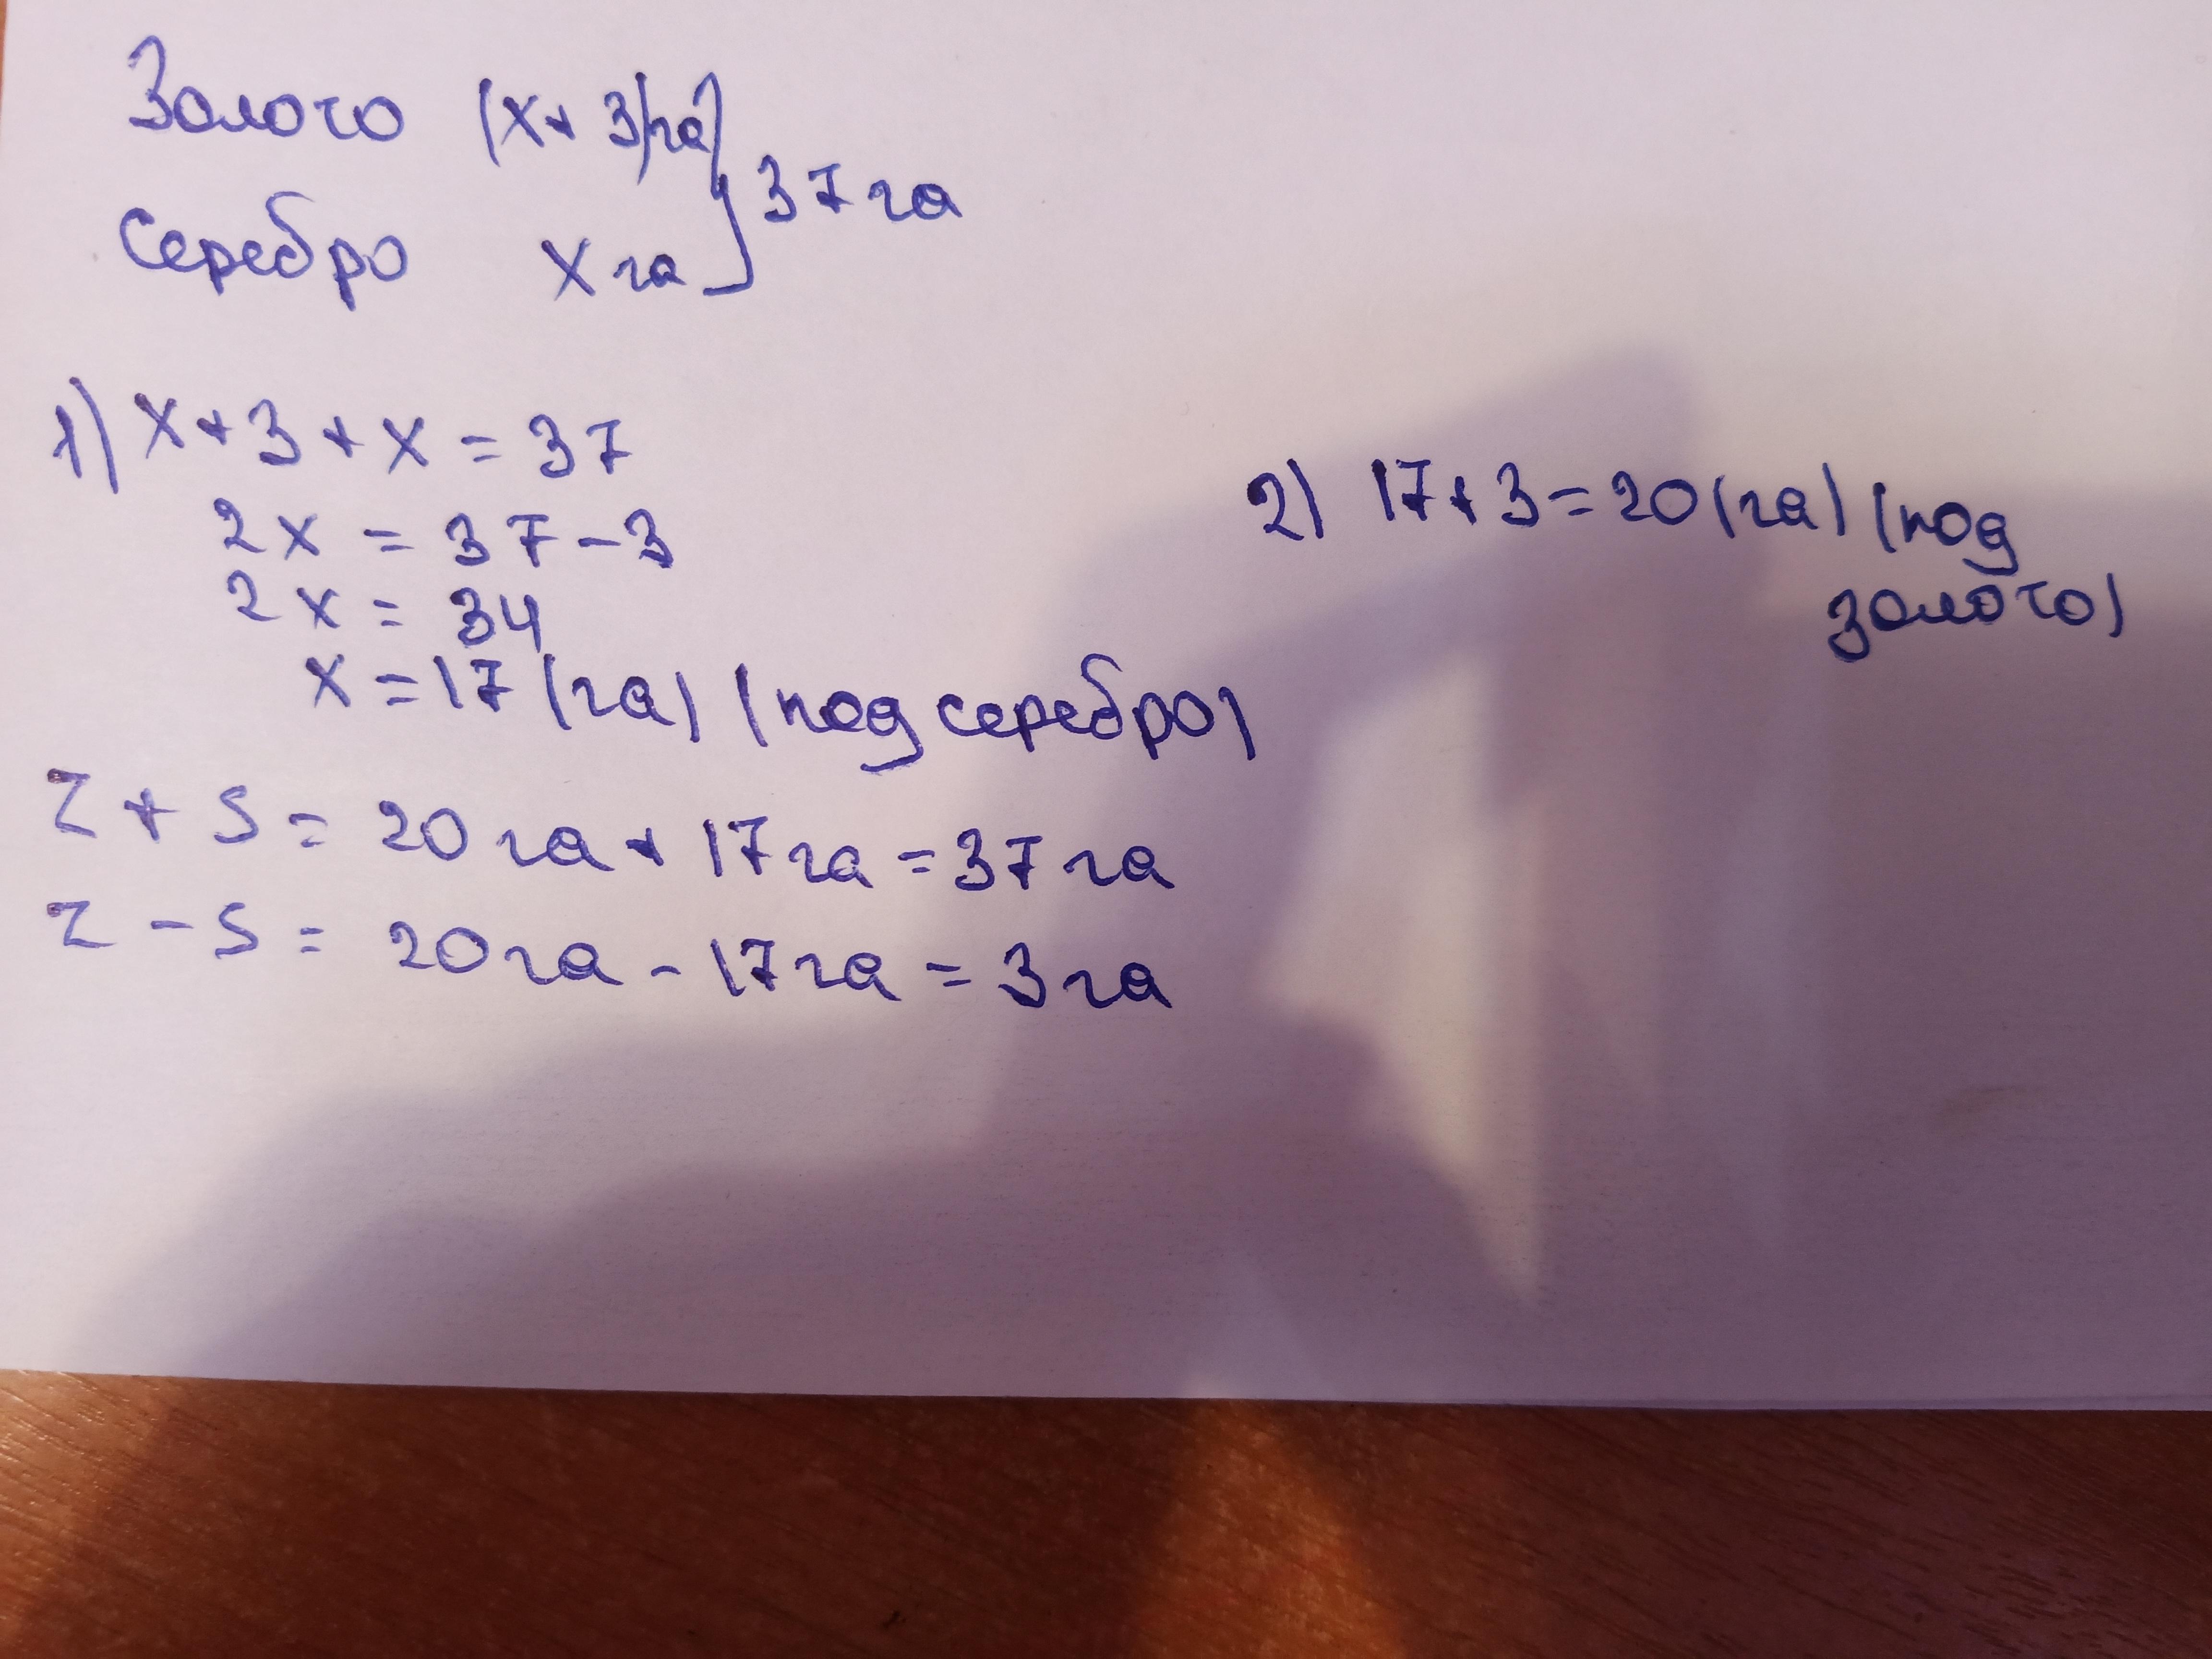 Золото (x+3)га
Серебро x га
37 га
1) x+3+x=37
2x=37-3
2x=34
x=17(га) (под серебро)
2) 17+3=20(га) (под
золото)
Z+S=20га+17га=37га
Z-S=20га-17га=3га